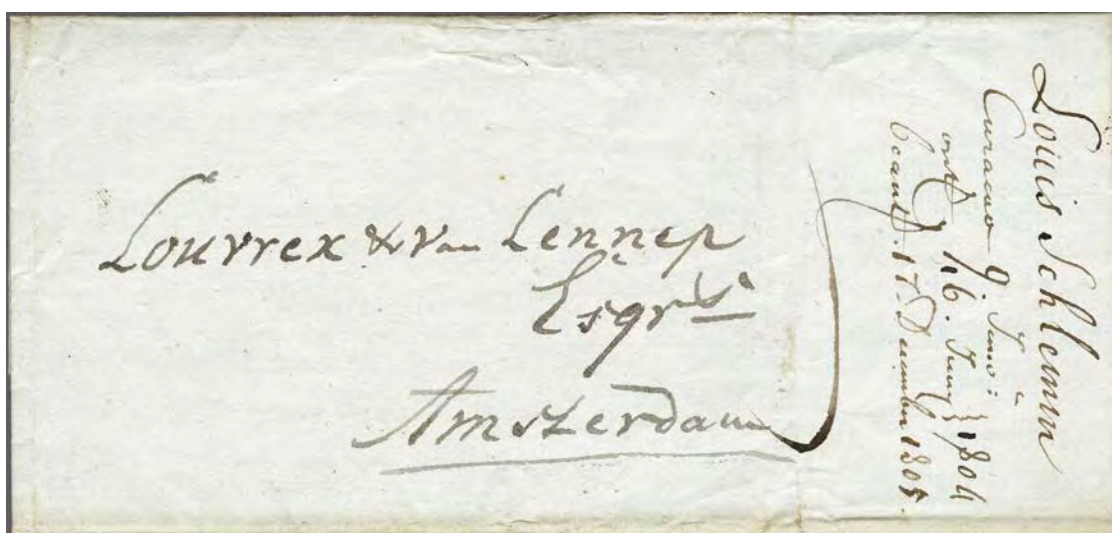 Louvrex & van Lennep
Esqrs.
Amsterdam
Louis Schlemm
Curacao 9. Juno: } 1804
ontf 26. Juny
beantw. 17. December 1805.